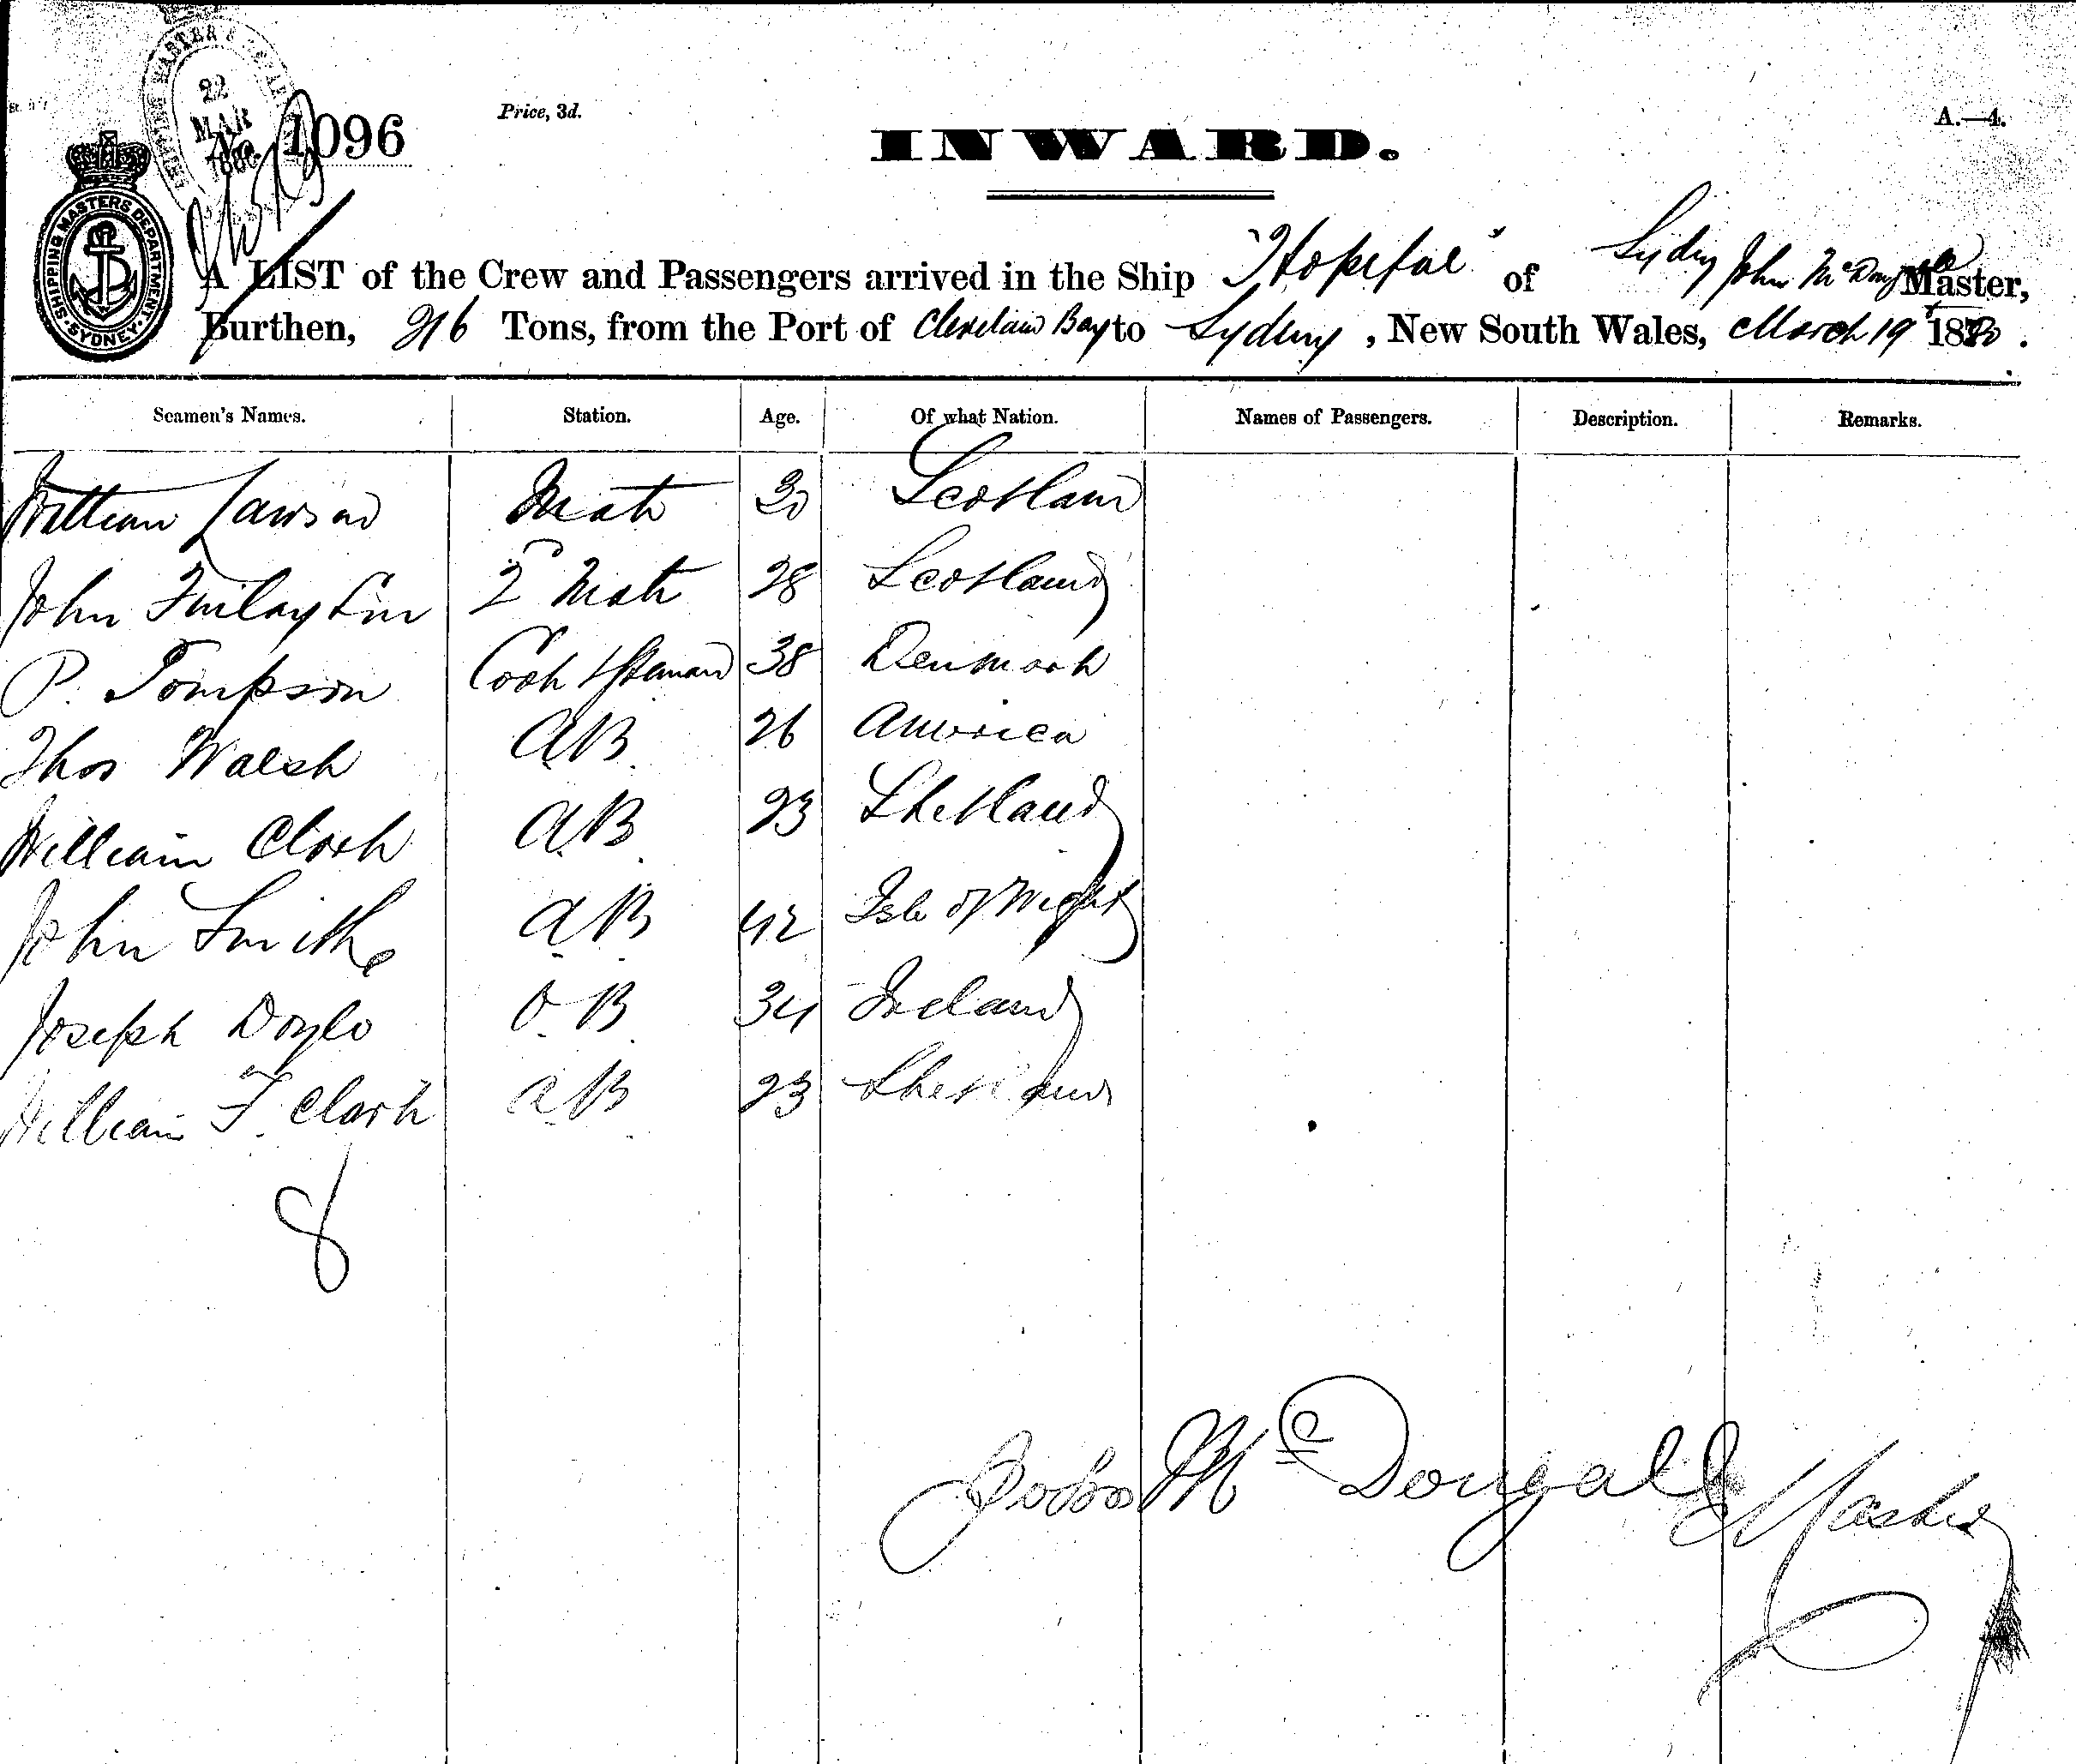 22
MAR
1096
Price, 3d.
A.—4.
INWARD.
SHIPPING MASTERS DEPARTMENT. SYDNEY.
A LIST of the Crew and Passengers arrived in the Ship "Hopeful" of Sydney John McDougall Master,
Burthen, 216 Tons, from the Port of Cleveland Bay to Sydney, New South Wales, March 19th 1880.
Seamen's Names. Station. Age. Of what Nation. Names of Passengers. Description. Remarks.
William Lawson Mate 30 Scotland
John Finlayson 2 Mate 28 Scotland
P. Tompson Cook & Steward 38 Denmark
Thos Walsh AB 26 America
William Clark A.B. 23 Shetland
John Smith A.B. 42 Isle of Wight
Joseph Doyle O.B. 34 Ireland
William F. Clark A.B. 23 Shetland
8
John McDougall Master